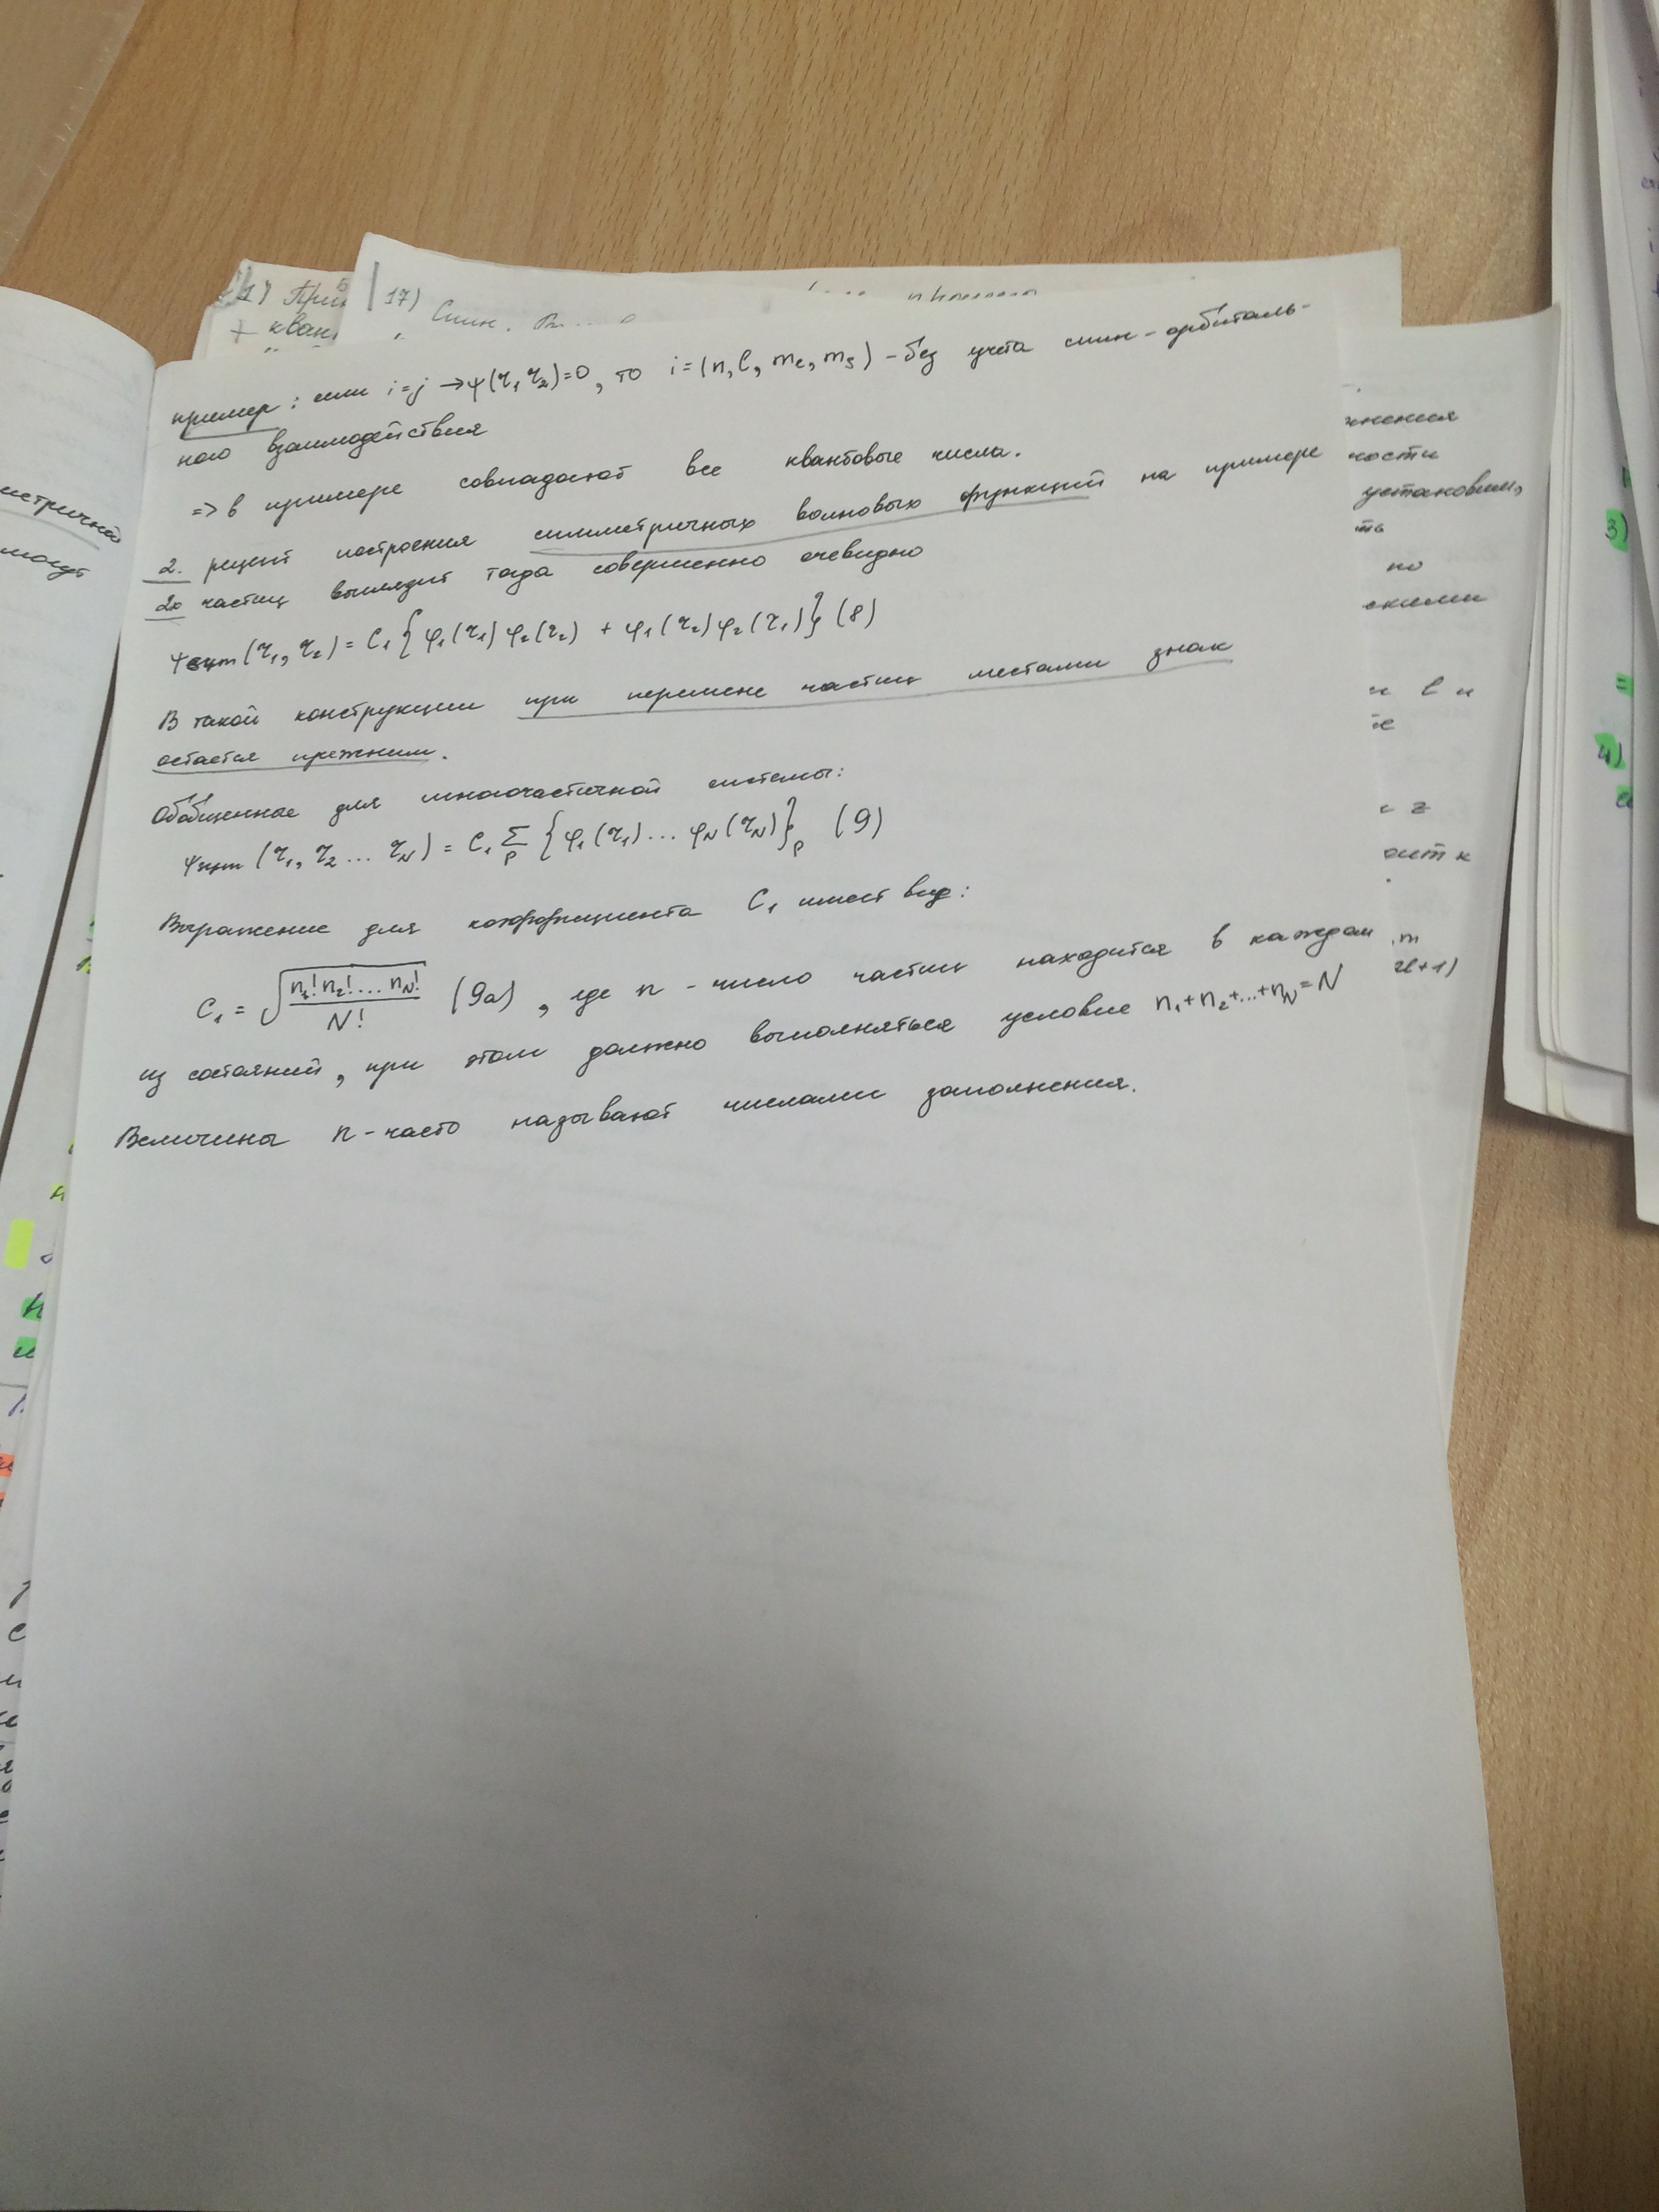 17)
пример: если i=j →ψ(r₁ r₂)=0, то i=(n, l, mₑ, mₛ) – без учета спин-орбиталь-
ного взаимодействия
=> в примере совпадают все квантовые числа.
2. рецепт построения симметричных волновых функций на примере
2х частиц выглядит тогда совершенно очевидно
ψсим(r₁, r₂) = C₁ {φ₁(r₁)φ₂(r₂) + φ₁(r₂)φ₂(r₁)} (8)
В такой конструкции при перемене частиц местами знак
остается прежним.
Обобщенное для многочастичной системы:
ψсим (r₁, r₂ ... r_N) = C₁ Σ_P {φ₁(r₁)... φ_N(r_N)}_P (9)
Выражение для коэффициента C₁ имеет вид:
C₁ = √(n₁! n₂! ... n_N! / N!) (9а), где n – число частиц находится в каждом
из состояний, при этом должно выполняться условие n₁+n₂+...+n_N=N
Величины n – часто называют числами заполнения.
могут
установим,
но
3)
4)